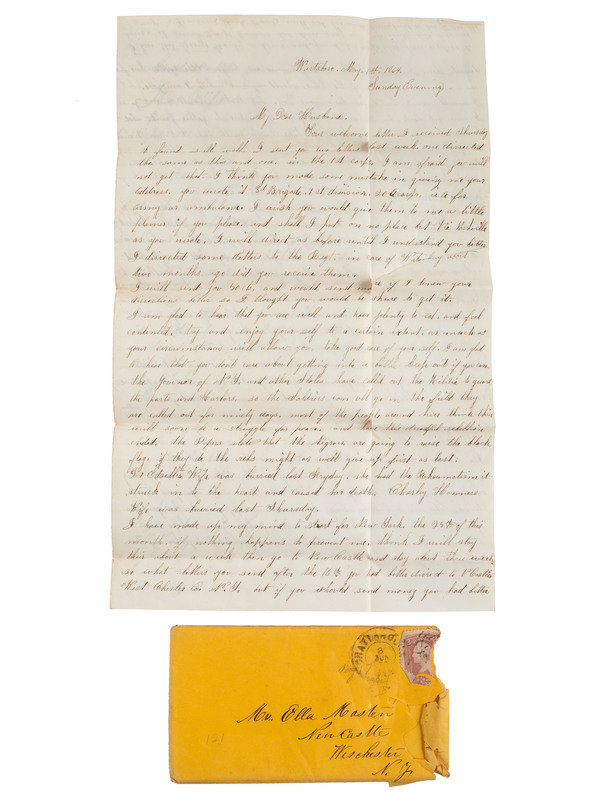 Wurtsboro, May, 1st, 1864.
Sunday Evening
My Dear Husband.
Your welcome letter I received Thursday
& found us all well I sent you two letters last week one directed
the same as this and one, in the 1st corps, I am afraid you will
not get that. I think you made some mistake in giving me your
address. you wrote it 3d Brigade, 1st division, 20th corps,
army ambulance. I wish you would give them to me a little
plainer if you please, and shall I put on no place but Via Nashville
as you wrote, I will direct as before until I understand you better
I directed some letters to the Regt. in care of about
two months ago did you receive them.
I will send you 50 cts, and would send more if I knew your
directions better so I thought you would be shure to get it.
I am glad to hear that you are well and have plenty to eat, and feel
contented, try and enjoy your self to a certain extent, as much as
your circumstances will allow you, take good care of your self, I am glad
to hear that you dont care about getting into a battle keep out if you can
the Governor of N.Y. and other States have called out the Militia to guard
the forts and Harbors, so the Soldiers can all go in the field they
are called out for ninety days, most of the people around here think this
will soon be a struggle for peace, and this dreadful rebellion
ended, the Papers state that the Negroes are going to raise the black
flag, if they do the rebs might as well give up first as last.
Wife was burried last Fryday, she had the Rheumatism it
struck in to the heart and caused her death, Charley
Wife was buried last Thursday.
I have made up my mind to start for New York, the 25th of this
month, if nothing happens to prevent me, think I will stay
there about a week then go to New Castle and stay about three weeks
so what letters you send after the 16th you had better direct to N. Castle
West Chester Co. N.Y. but if you should send money you had better
Mrs. Ella Masten
New Castle
Wischester
N. Y.
121